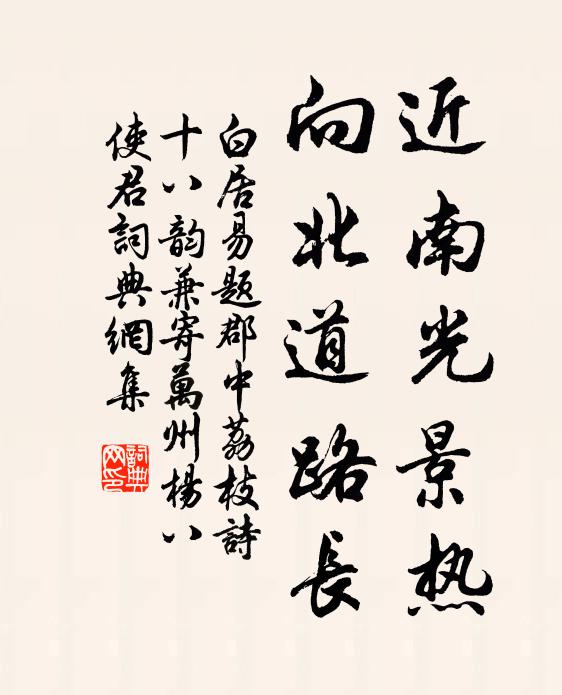 近南光景热
向北道路長
白居易題郡中荔枝詩
十八韵兼寄萬州楊八
使君詞典網集
詞典
网印